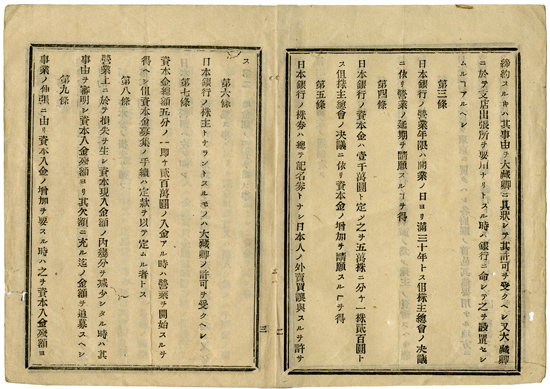 締約スルトキハ其事由ヲ大藏卿ニ具狀シテ其許可ヲ受クヘシ又大藏卿
ニ於テ支店出張所ヲ要用ナリトスル時ハ銀行ニ命シテ之ヲ設置セシ
ムルヿアルヘシ
第三條
日本銀行ノ營業年限ハ開業ノ日ヨリ滿三十年トス但株主總會ノ决議
ニ依リ營業ノ延期ヲ請願スルヿヲ得
第四條
日本銀行ノ資本金ハ壹千萬圓ト定メ之ヲ五萬株ニ分チ一株貳百圓ト
ス但株主總會ノ决議ニ依リ資本金ノ増加ヲ請願スルヿヲ得
第五條
日本銀行ノ株券ハ總テ記名券トナシ日本人ノ外賣買讓與スルヲ許サ
二
三
ス
第六條
日本銀行ノ株主トナラントスルモノハ大藏卿ノ許可ヲ受クヘシ
第七條
資本金總額五分ノ一即チ貳百萬圓ノ入金アル時ハ營業ヲ開始スルヲ
得ヘシ但資本金募集ノ手續ハ定款ヲ以テ定ムル者トス
第八條
營業上ニ於テ損失ヲ生シ資本現入金額ノ内幾分ヲ减少シタル時ハ其
事由ヲ審明シ資本入金殘額ヨリ其欠額ニ充ル迄ノ金額ヲ追募スヘシ
第九條
事業ノ伸張ニ由リ資本入金ノ増加ヲ要スル時ハ之ヲ資本入金殘額ヨ